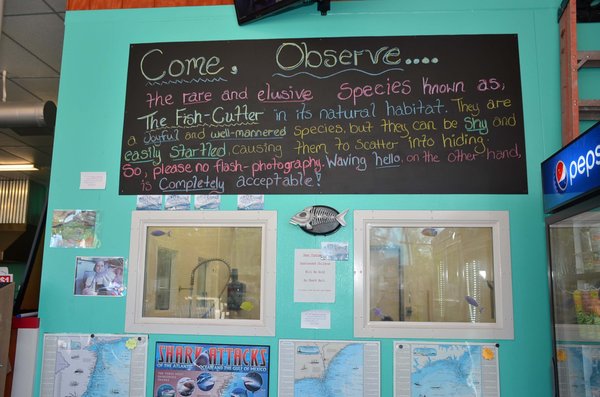 Come, Observe....
the rare and elusive Species known as,
The Fish-Cutter in its natural habitat. They are
a Joyful and well-mannered species, but they can be shy and
easily startled, causing them to scatter into hiding.
So, please no flash-photography. Waving hello, on the other hand,
is Completely acceptable!
pepsi
SHARK ATTACKS
OF THE ATLANTIC OCEAN AND THE GULF OF MEXICO